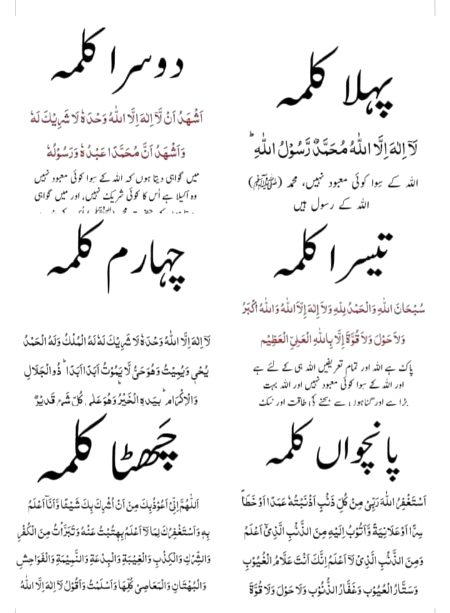 پہلا کلمہ
لَآ اِلٰهَ اِلَّا اللّٰهُ مُحَمَّدٌ رَّسُوْلُ اللّٰهِ ؕ
اللہ کے سِوا کوئی معبود نہیں، محمد (ﷺ)
اللہ کے رسول ہیں
دوسرا کلمہ
اَشْهَدُ اَنْ لَّآ اِلٰهَ اِلَّا اللّٰهُ وَحْدَهٗ لَا شَرِيْكَ لَهٗ
وَاَشْهَدُ اَنَّ مُحَمَّدًا عَبْدُهٗ وَرَسُوْلُهٗ
میں گواہی دیتا ہوں کہ اللہ کے سِوا کوئی معبود نہیں
وہ اکیلا ہے اُس کا کوئی شریک نہیں، اور میں گواہی
تیسرا کلمہ
سُبْحَانَ اللّٰهِ وَالْحَمْدُ لِلّٰهِ وَلَآ اِلٰهَ اِلَّا اللّٰهُ وَاللّٰهُ اَكْبَرُ
وَلَا حَوْلَ وَلَا قُوَّةَ اِلَّا بِاللّٰهِ الْعَلِيِّ الْعَظِيْمِ
پاک ہے اللہ اور تمام تعریفیں اللہ ہی کے لئے ہے
اور اللہ کے سِوا کوئی معبود نہیں اور اللہ بہت
بڑا ہے اور گناہوں سے بچنے کی طاقت اور نیک
چہارم کلمہ
لَآ اِلٰهَ اِلَّا اللّٰهُ وَحْدَهٗ لَا شَرِيْكَ لَهٗ لَهُ الْمُلْكُ وَلَهُ الْحَمْدُ
يُحْيٖ وَيُمِيْتُ وَهُوَ حَيٌّ لَّا يَمُوْتُ اَبَدًا اَبَدًا ؕ ذُو الْجَلَالِ
وَالْاِكْرَامِ ؕ بِيَدِهِ الْخَيْرُ وَهُوَ عَلٰى كُلِّ شَيْءٍ قَدِيْرٌ
پانچواں کلمہ
اَسْتَغْفِرُ اللّٰهَ رَبِّيْ مِنْ كُلِّ ذَنْۢبٍ اَذْنَبْتُهٗ عَمَدًا اَوْ خَطَأً
سِرًّا اَوْ عَلَانِيَةً وَّاَتُوْبُ اِلَيْهِ مِنَ الذَّنْۢبِ الَّذِيْٓ اَعْلَمُ
وَمِنَ الذَّنْۢبِ الَّذِيْ لَآ اَعْلَمُ اِنَّكَ اَنْتَ عَلَّامُ الْغُيُوْبِ
وَسَتَّارُ الْعُيُوْبِ وَغَفَّارُ الذُّنُوْبِ وَلَا حَوْلَ وَلَا قُوَّةَ
چھٹا کلمہ
اَللّٰهُمَّ اِنِّيْٓ اَعُوْذُ بِكَ مِنْ اَنْ اُشْرِكَ بِكَ شَيْئًا وَّاَنَا اَعْلَمُ
بِهٖ وَاَسْتَغْفِرُكَ لِمَا لَآ اَعْلَمُ بِهٖ تُبْتُ عَنْهُ وَتَبَرَّأْتُ مِنَ الْكُفْرِ
وَالشِّرْكِ وَالْكِذْبِ وَالْغِيْبَةِ وَالْبِدْعَةِ وَالنَّمِيْمَةِ وَالْفَوَاحِشِ
وَالْبُهْتَانِ وَالْمَعَاصِيْ كُلِّهَا وَاَسْلَمْتُ وَاَقُوْلُ لَآ اِلٰهَ اِلَّا اللّٰهُ